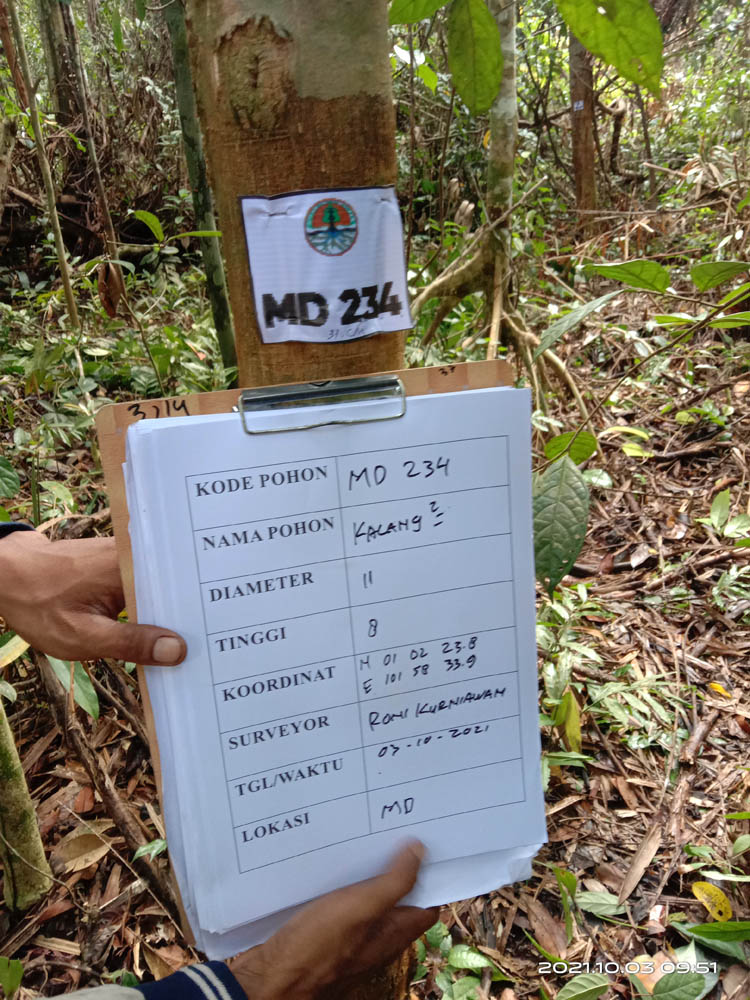 MD 234
3714
KODE POHON MD 234
NAMA POHON KALANG 2
DIAMETER 11
TINGGI 8
KOORDINAT N 01 02 23.8
E 101 58 33.9
SURVEYOR ROMI KURNIAWAN
TGL/WAKTU 03-10-2021
LOKASI MD
2021.10.03 09:51